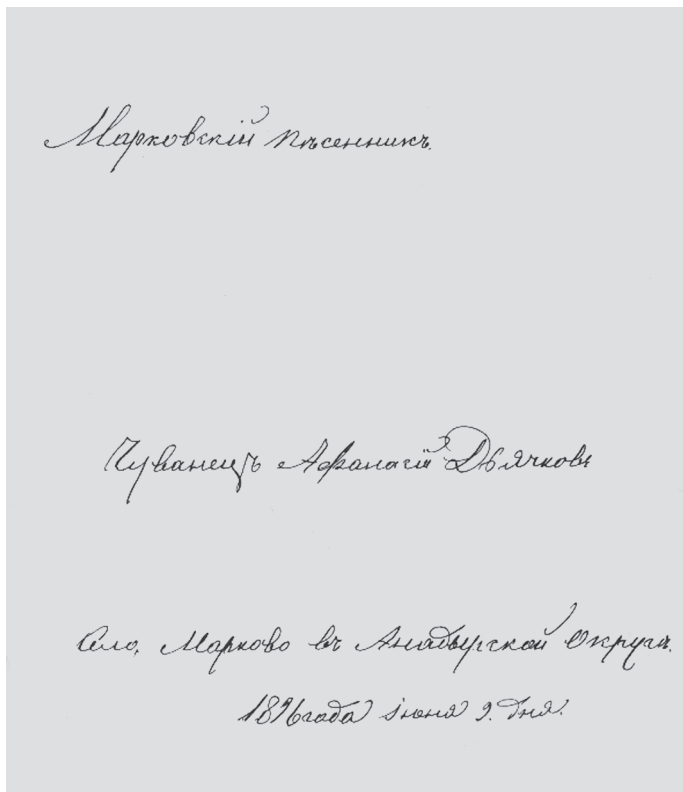 Марковскій пѣсенникъ.
Чуванецъ Афанасій Дьячковъ
Село, Марково въ Анадырской Округѣ.
1896 года іюня 9. дня.